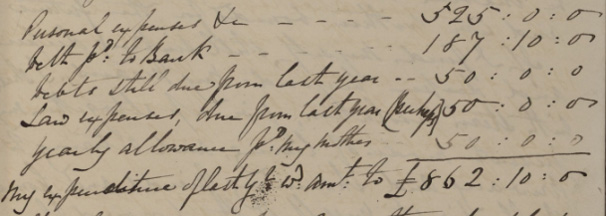 Personal expenses &c - - - - 525 : 0 : 0
Debt pd. to Bank - - - - - 187 : 10 : 0
Debts still due from last year - - 50 : 0 : 0
Law expenses, due from last year (perhaps) 50 : 0 : 0
Yearly allowance pd. my mother 50 : 0 : 0
My expenditure of last yr wd. amt. to £862 : 10 : 0